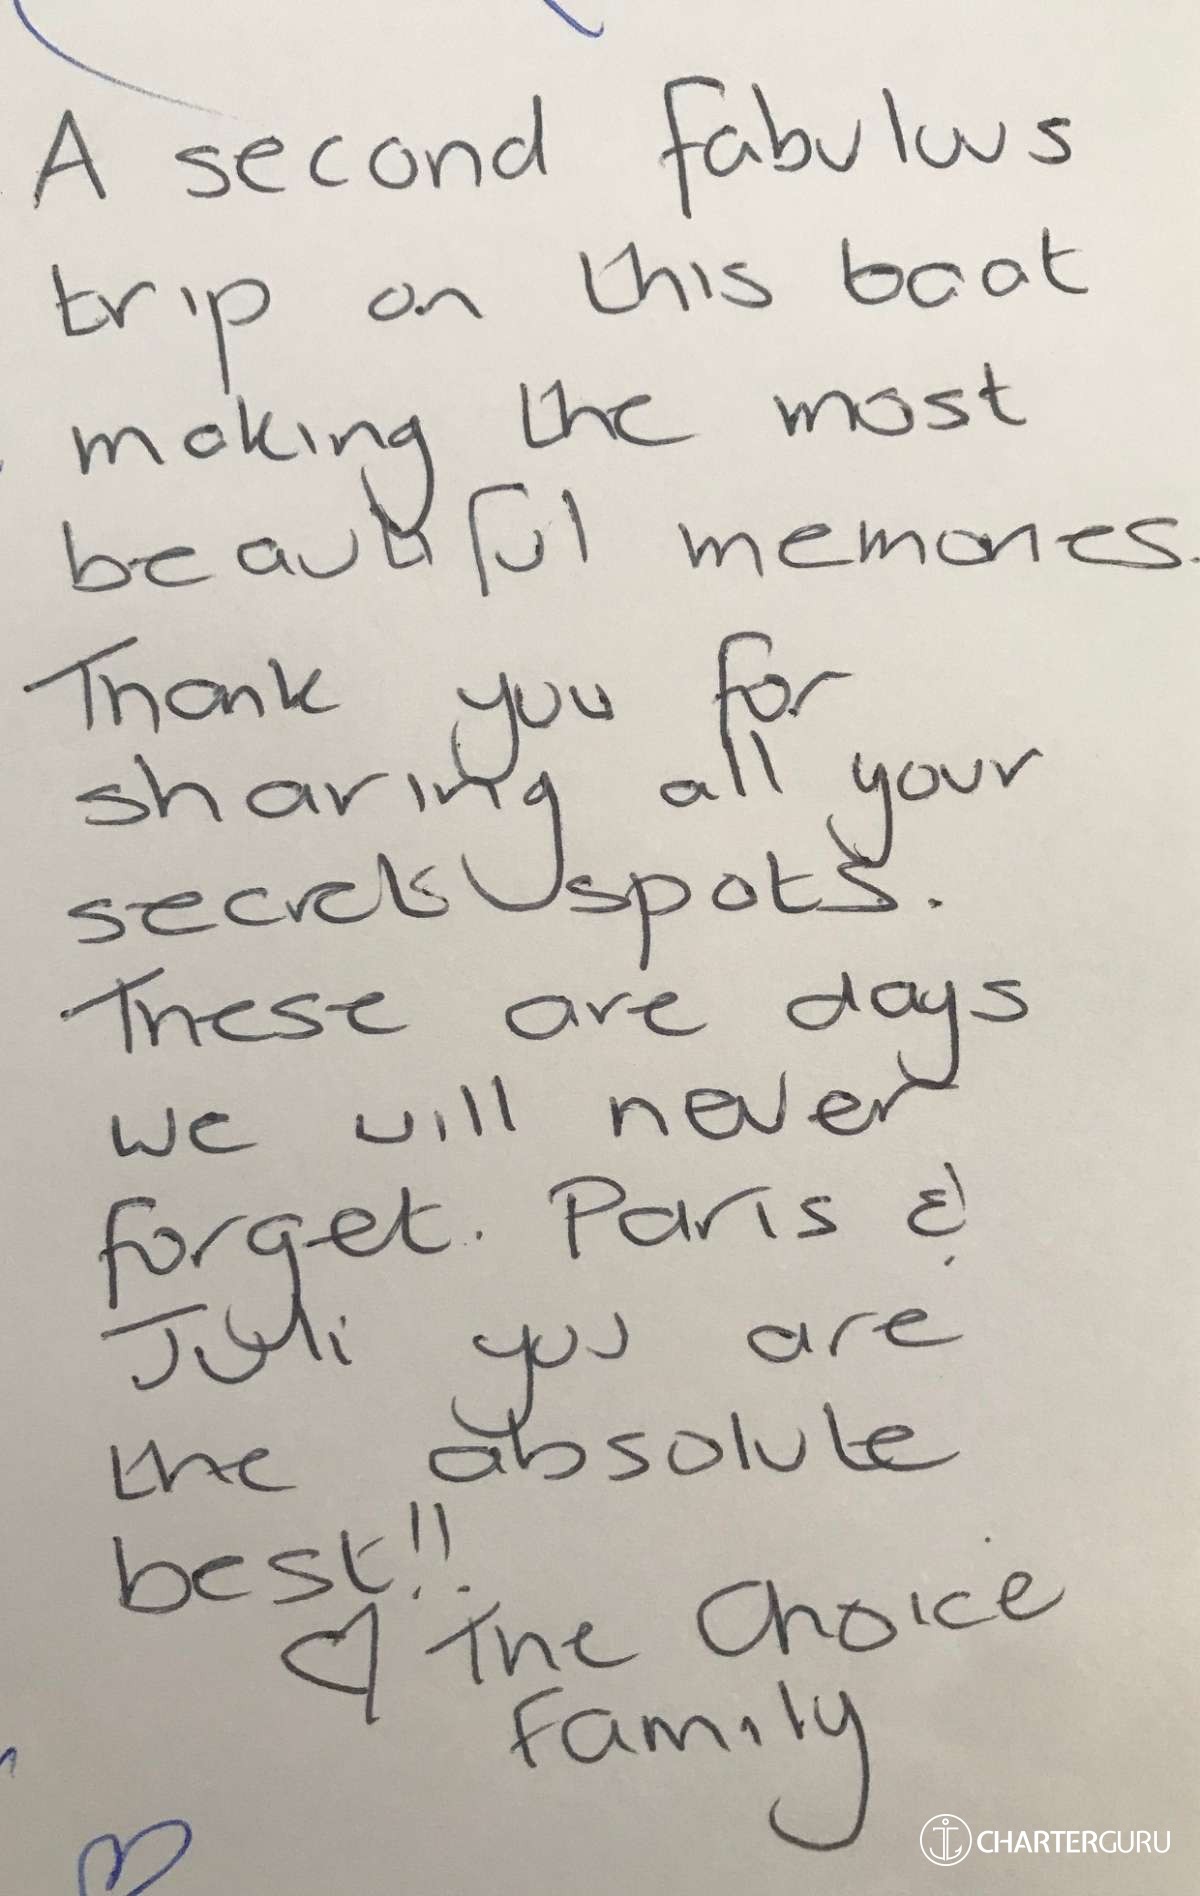 A second fabulous
trip on this boat
making the most
beautiful memories.
Thank you for
sharing all your
secrets spots.
These are days
we will never
forget. Paris &
Juli you are
the absolute
best!!
♡ The Choice
Family
CHARTERGURU